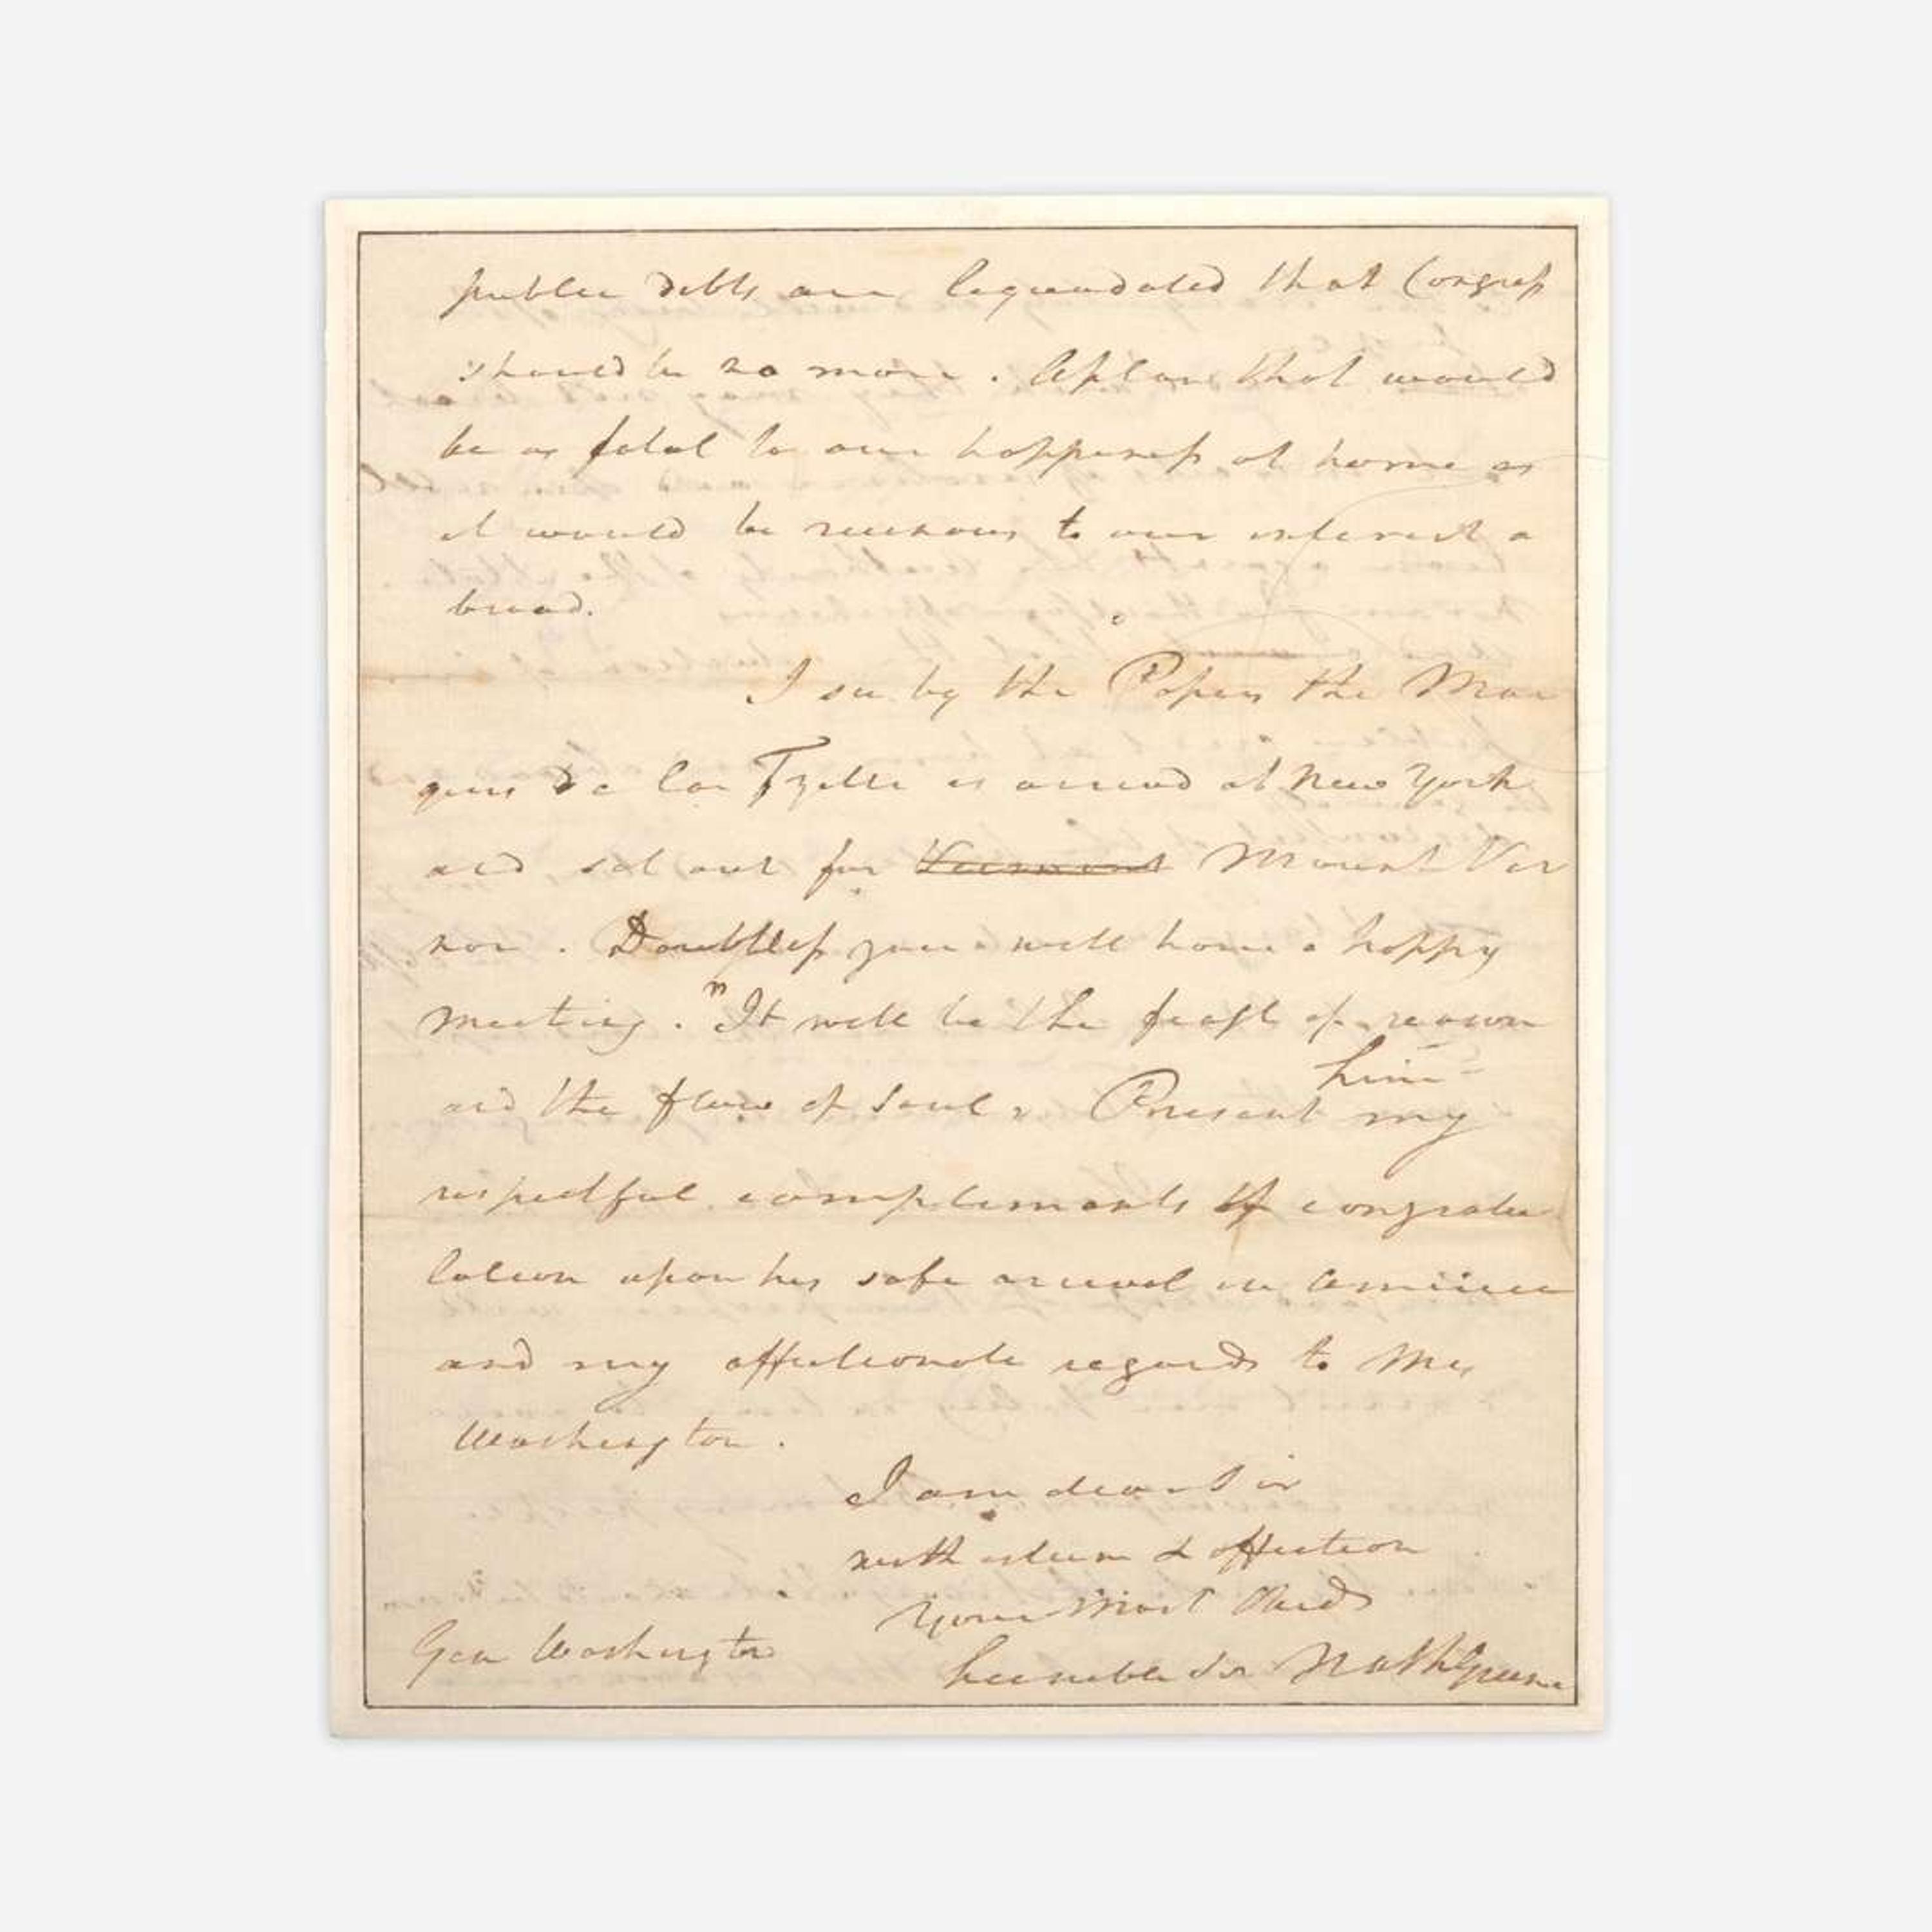 public debts are liquedated that Congress
should be no more. A plan that would
be as fatal to our happiness at home as
it would be ruenous to our interest a
broad.
I see by the Papers the Mar
quis de la Fyette is arrived at New York
and set out for Mount Ver
non. Doubtless you will have a happy
meeting. "It will be the feast of reason
him
and the flow of soul". Present my
respectful complements of congratu
lation upon his safe arrival in America
and my affectionate regards to Mrs
Washington.
I am dear Sir
with esteem & affection
Your Most Obed
humble Sr NathGreene
Gen Washington